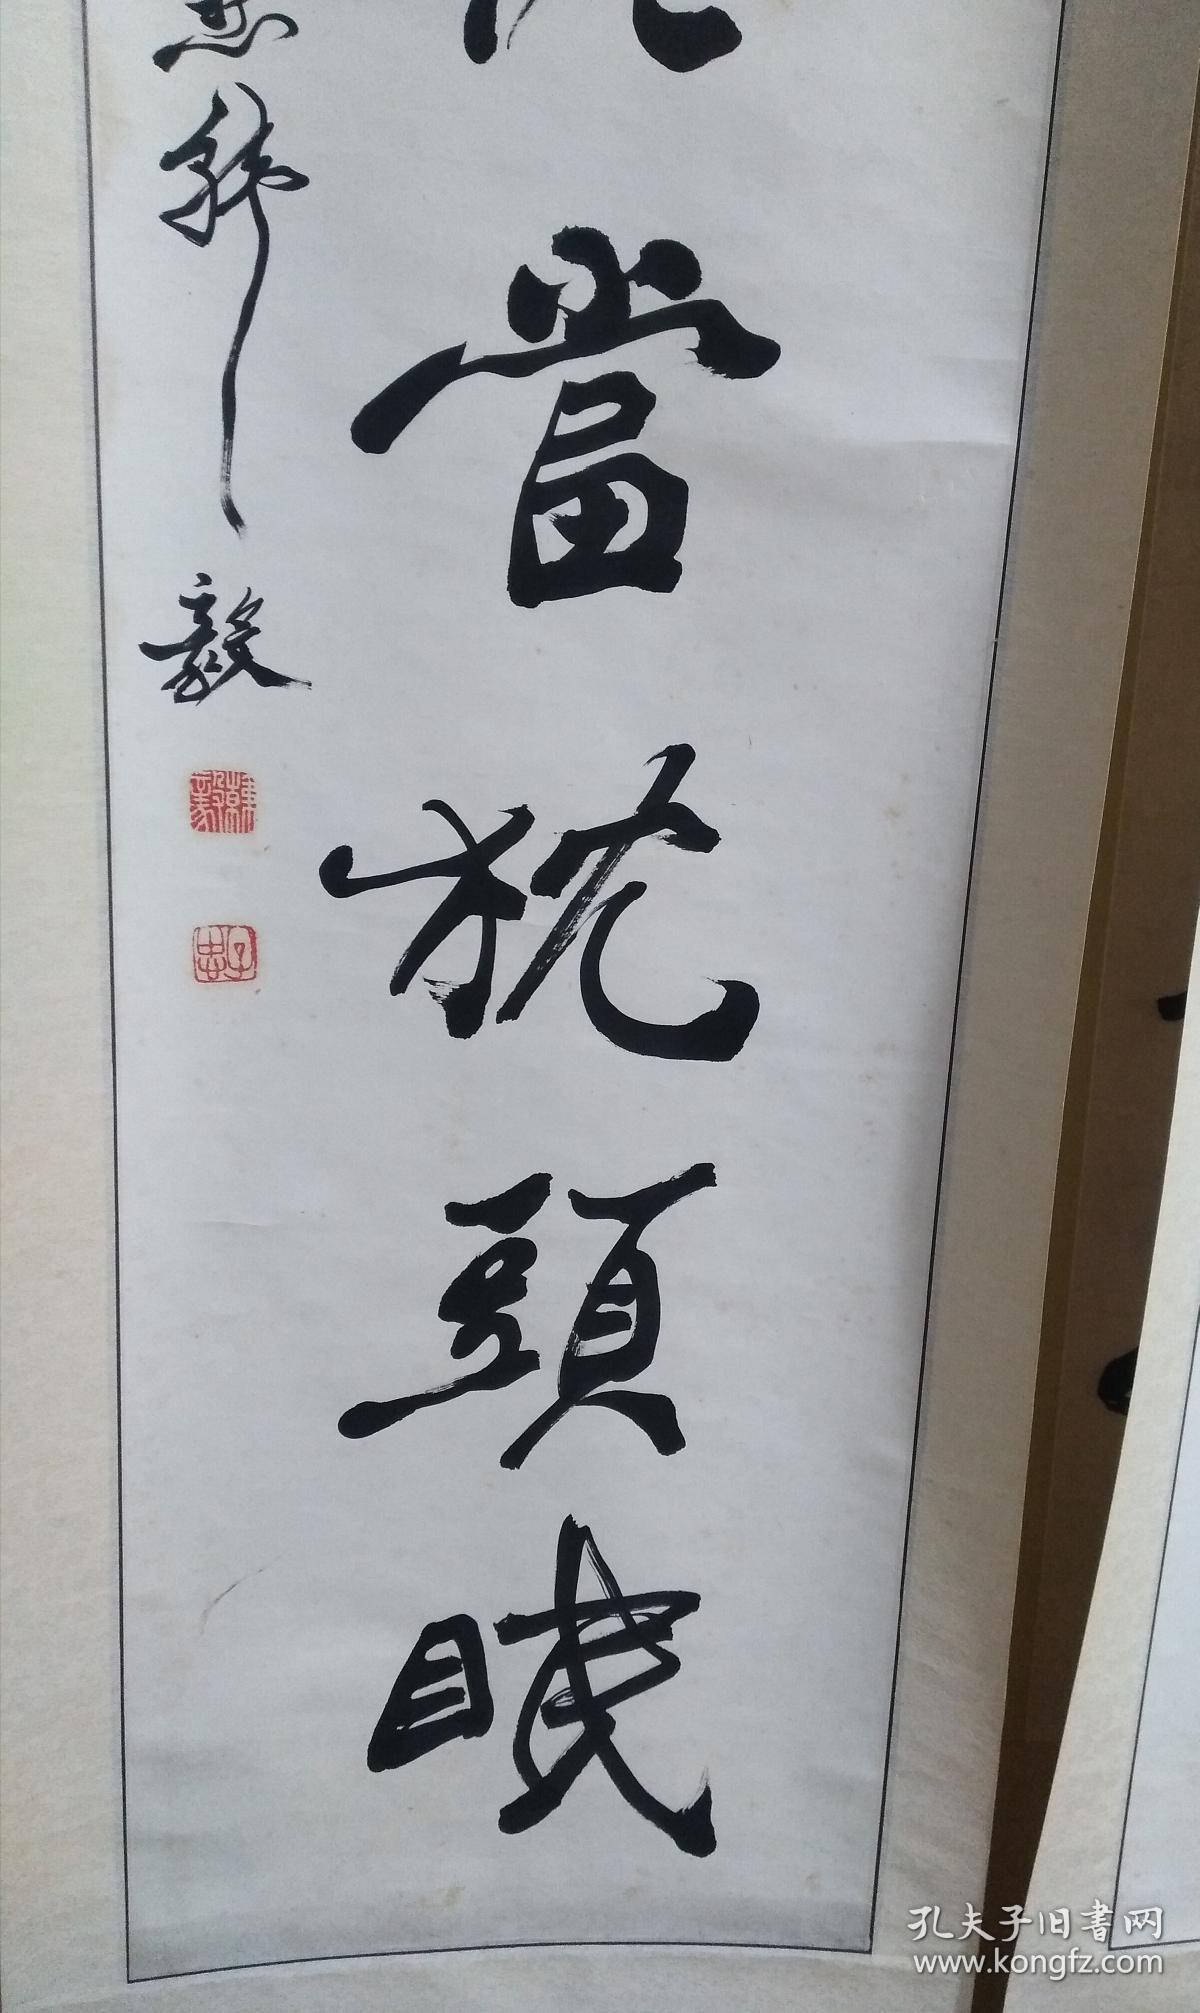 當枕頭眠
韓毅
韓毅
子忠
孔夫子旧書网
www.kongfz.com